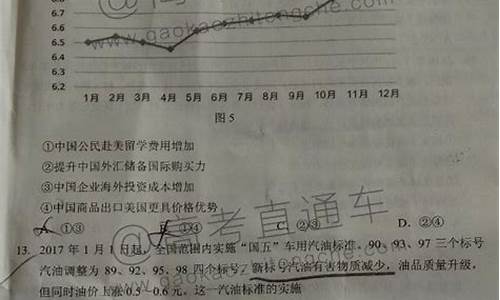 6.8
6.7
6.6
6.5
6.4
6.3
6.2
1月 2月 3月 4月 5月 6月 7月 8月 9月 10月 11月 12月
图5
①中国公民赴美留学费用增加
②提升中国外汇储备国际购买力
③中国企业海外投资成本增加
④中国商品出口美国更具价格优势
A. ①③ ①④ C. ②③ D. ②④
13. 2017年1月1日起，全国范围内实施“国五”车用汽油标准。90、93、97三个标号
汽油调整为89、92、95、98四个标号，新标号汽油有害物质减少，油品质量升级，
但同时油价上涨0.5—0.6元。这一汽油标准的实施
www.gaokaozhitongche.com
@高考直通车